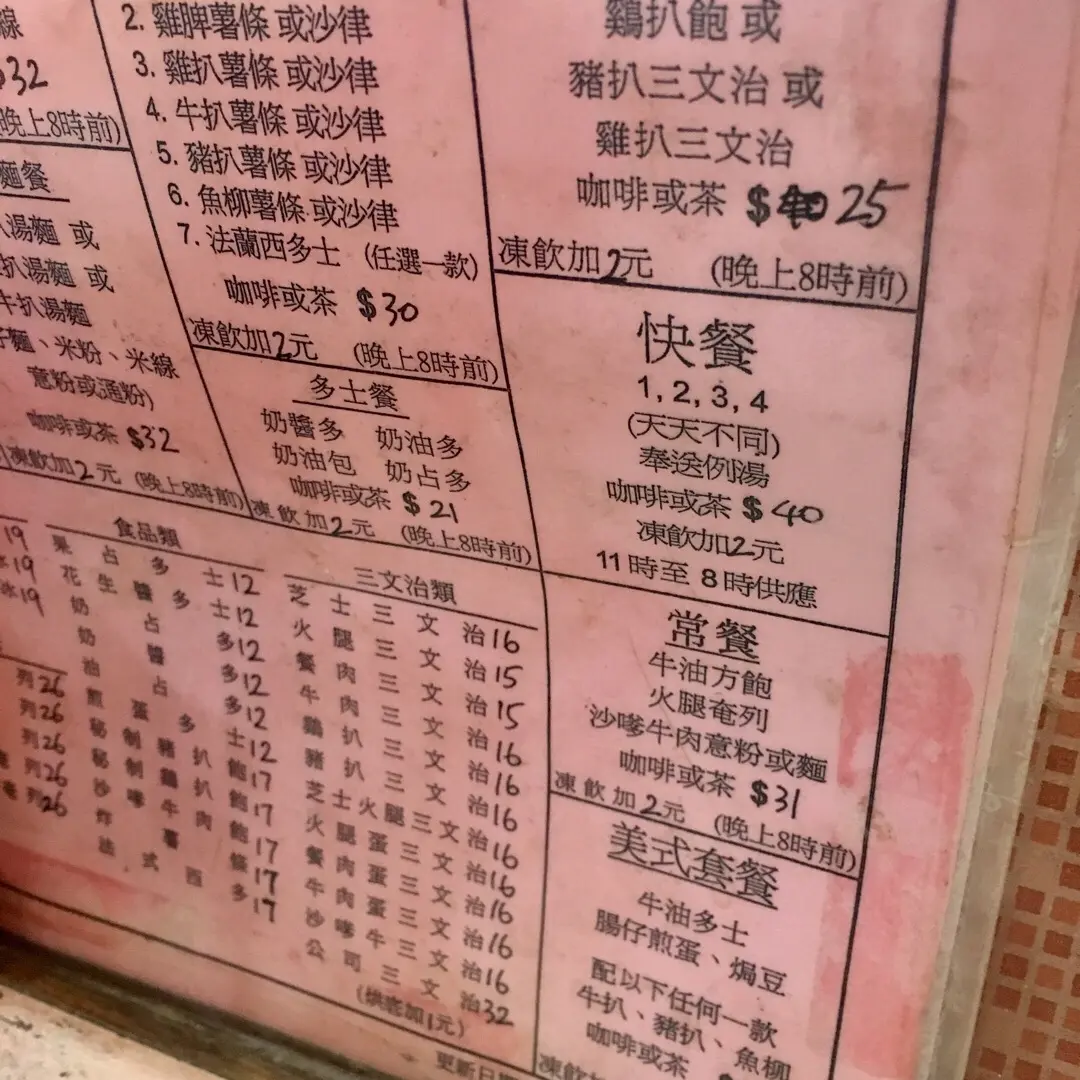 線
$32
晚上8時前)
麵餐
湯麵 或
扒湯麵 或
牛扒湯麵
麵、米粉、米線
意粉或通粉)
咖啡或茶 $32
凍飲加2元 (晚上8時前)
2. 雞脾薯條 或沙律
3. 雞扒薯條 或沙律
4. 牛扒薯條 或沙律
5. 豬扒薯條 或沙律
6. 魚柳薯條 或沙律
7. 法蘭西多士 (任選一款)
咖啡或茶 $30
凍飲加2元 (晚上8時前)
多士餐
奶醬多 奶油多
奶油包 奶占多
咖啡或茶 $21
凍飲加2元 (晚上8時前)
鷄扒飽 或
豬扒三文治 或
雞扒三文治
咖啡或茶 $ 25
凍飲加2元 (晚上8時前)
快餐
1, 2, 3, 4
(天天不同)
奉送例湯
咖啡或茶 $40
凍飲加2元
11時至 8時供應
常餐
牛油方飽
火腿奄列
沙嗲牛肉意粉或麵
咖啡或茶 $31
凍飲加2元 (晚上8時前)
美式套餐
牛油多士
腸仔煎蛋、焗豆
配以下任何一款
牛扒、豬扒、魚柳
咖啡或茶
凍飲
19
冰19
冰19
列26
列26
列26
列26
列26
食品類
果占多士12
花生醬多士12
奶占多12
奶醬多12
油占多12
煎蛋多士12
秘制豬扒飽17
秘制鷄扒飽17
沙嗲牛肉飽17
炸薯條17
法式西多17
三文治類
芝士三文治16
火腿三文治15
餐肉三文治15
牛肉三文治16
鷄扒三文治16
豬扒三文治16
芝士火腿三文治16
火腿蛋三文治16
餐肉蛋三文治16
牛肉蛋三文治16
沙嗲牛三文治16
公司三文治32
(烘底加1元)
更新日期